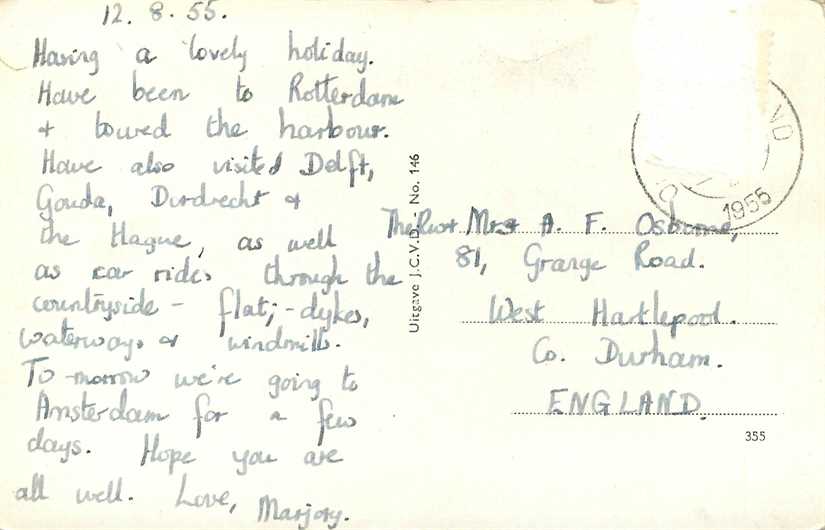 12. 8. 55.
Having a lovely holiday.
Have been to Rotterdam
& toured the harbour.
Have also visited Delft,
Gouda, Dordrecht &
the Hague, as well
as car rides through the
countryside - flat; - dykes,
waterways & windmills.
To-morrow we're going to
Amsterdam for a few
days. Hope you are
all well. Love, Marjory.
Uitgave J.C.V.D. - No. 146
1955
The Rev & Mrs A. F. Osborne,
81, Grange Road.
West Hartlepool.
Co. Durham.
ENGLAND.
355